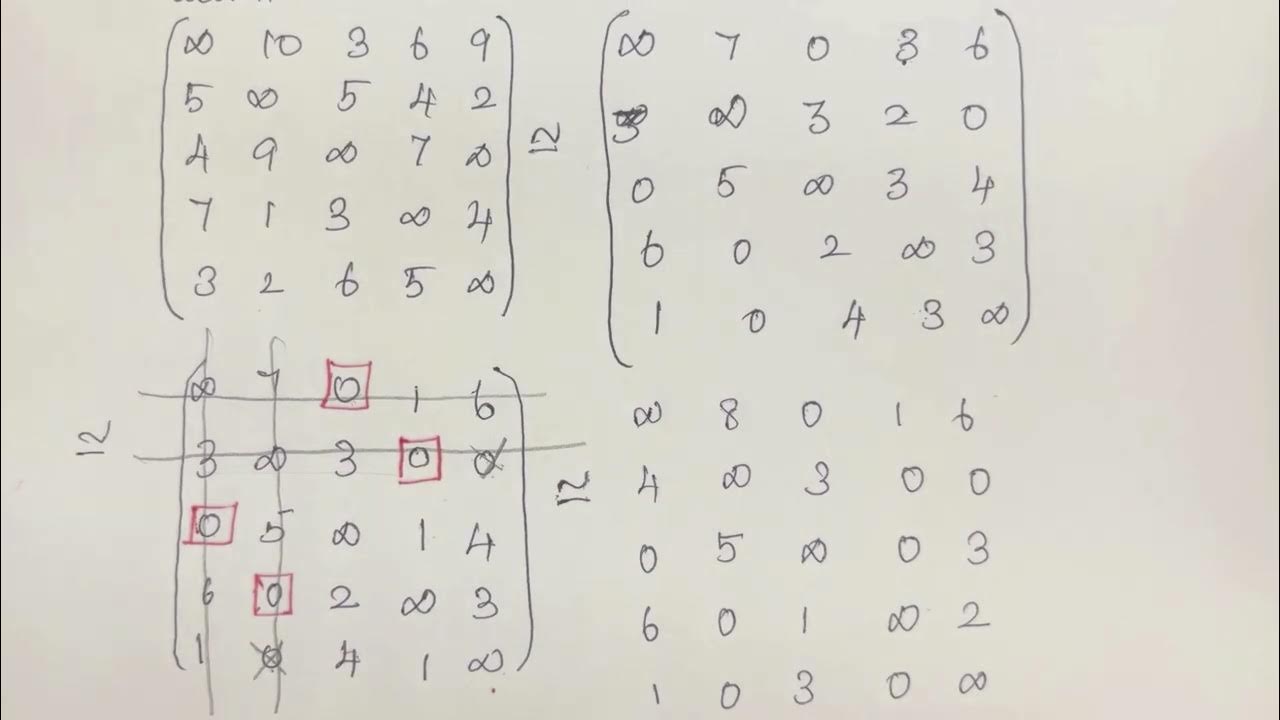 ∞ 10 3 6 9
5 ∞ 5 4 2
4 9 ∞ 7 ∞
7 1 3 ∞ 4
3 2 6 5 ∞
12
∞ 7 0 3 6
3 ∞ 3 2 0
0 5 ∞ 3 4
6 0 2 ∞ 3
1 0 4 3 ∞
12
∞ 7 0 1 6
3 ∞ 3 0 0
0 5 ∞ 1 4
6 0 2 ∞ 3
1 0 4 1 ∞
12
∞ 8 0 1 6
4 ∞ 3 0 0
0 5 ∞ 0 3
6 0 1 ∞ 2
1 0 3 0 ∞